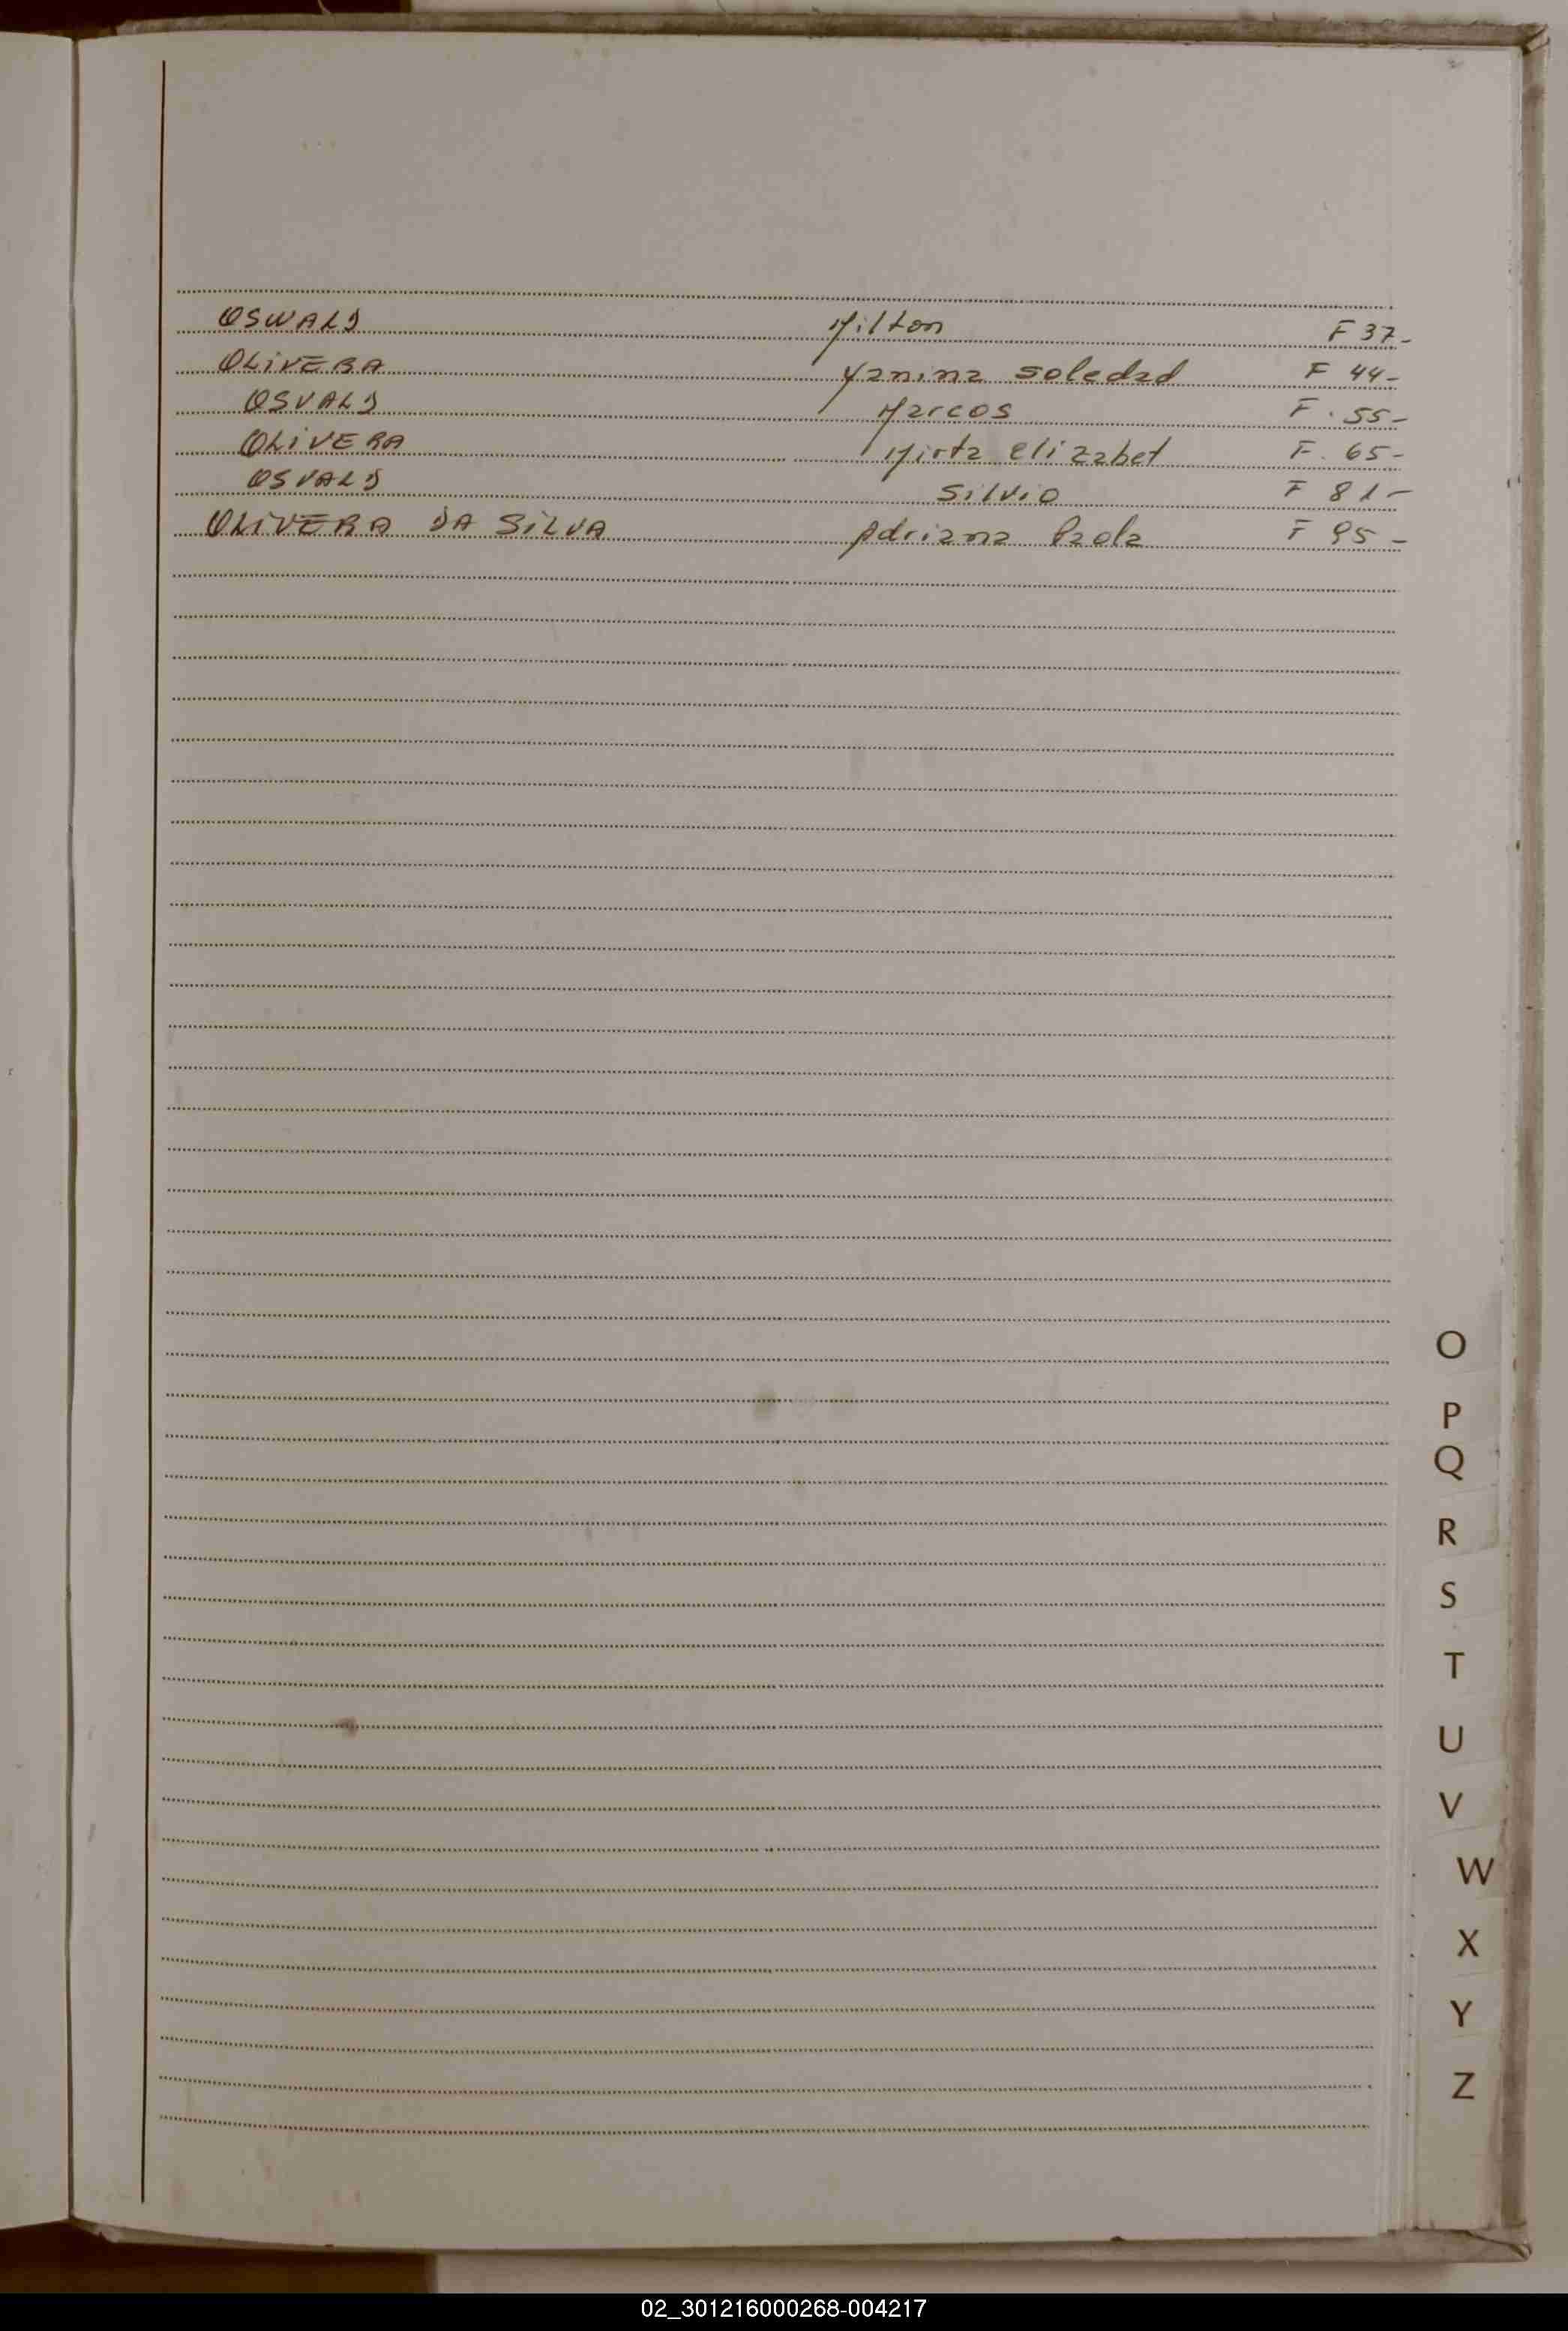 OSWALD Milton F 37-
OLIVERA Yanina Soledad F 44-
OSVALD Marcos F. 55-
OLIVERA Mirta Elizabet F. 65-
OSVALD Silvio F 81-
OLIVERA DA SILVA Adriana Paola F 95-
O
P
Q
R
S
T
U
V
W
X
Y
Z
02_301216000268-004217